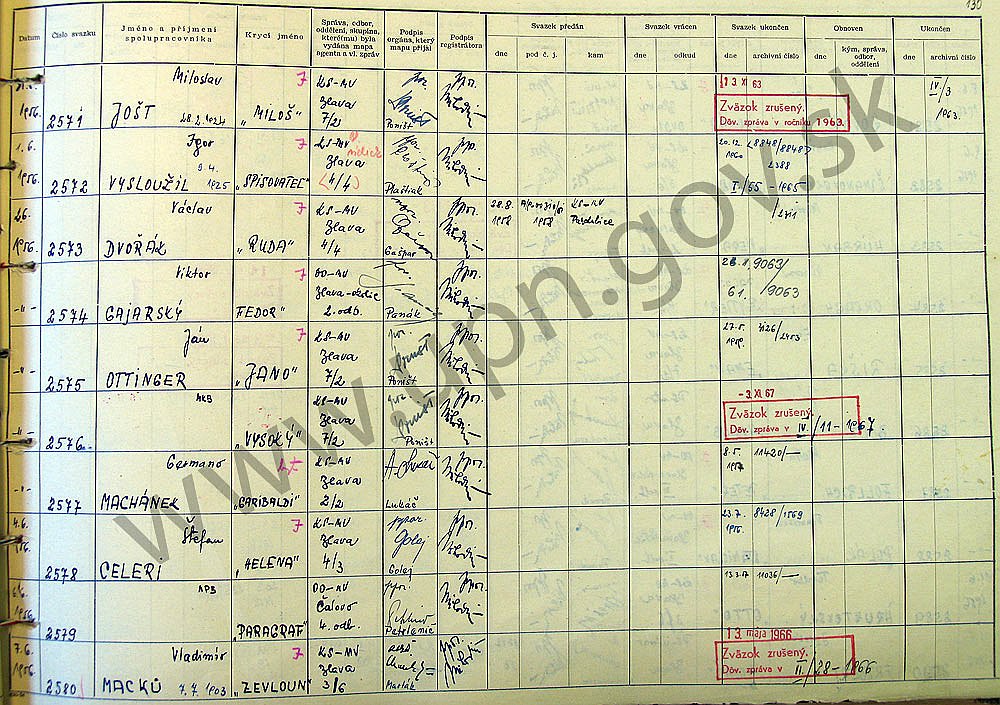 130
Datum
Číslo svazku
Jméno a příjmení spolupracovníka
Krycí jméno
Správa, odbor, oddělení, skupina, které(mu) byla vydána mapa agenta a vl. zpráv
Podpis orgána, který mapu přijal
Podpis registrátora
Svazek předán
dne
pod č. j.
kam
Svazek vrácen
dne
odkud
Svazek ukončen
dne
archivní číslo
Obnoven
dne
kým, správa, odbor, oddělení
Ukončen
dne
archivní číslo
1956.
2571
Miloslav
JOŠT 28.2.1924
7
„MILOŠ"
KS-MV
Ilava
7/2
Poništ
13 XI 63
Zväzok zrušený.
Dôv. zpráva v ročníku 1963.
IV/3
1963.
1.6.
1956.
2572
Igor
9.4.
VYSLOUŽIL 1925
7
„SPISOVATEĽ"
KS-MV
Ilava
(4/4)
Plaštiak
20.12.
1960
8848/8848
2388
I/55-1965
2.6.
1956.
2573
Václav
DVOŘÁK
7
„RUDA"
KS-MV
Ilava
4/4
Gašpar
28.8.
1958
KS-MV
Pardubice
-"-
2574
Viktor
GAJARSKÝ
7
FEDOR"
OO-MV
Ilava-okolie
2. odb.
Panák
28.1.
61.
9063/
/9063
-"-
2575
Ján
OTTINGER
7
„JANO"
KS-MV
Ilava
7/2
Poništ
27.5.
-"-
2576
AKB
„VYSOKÝ"
KS-MV
Ilava
7/2
Poništ
-3. XI. 67
Zväzok zrušený.
Dôv. zpráva v IV/11-1967.
-"-
2577
Germano
MACHÁNEK
„GARIBALDI"
KS-MV
Ilava
2/2
Lukáč
8.5.
11420/—
4.6.
2578
Štefan
CELERI
7
„HELENA"
KS-MV
Ilava
4/3
Golej
Golej
23.7.
8428/1569
6.6.
1956.
2579
APB
„PARAGRAF"
OO-MV
Čalovo
4. odb.
11036/—
7.6.
1956.
2580
Vladimír
MACKŮ 7.7.1903
7
„ZEVLOUN"
KS-MV
Ilava
3/6
13. maja 1966
Zväzok zrušený.
Dôv. zpráva v II/28-1966
www.upn.gov.sk